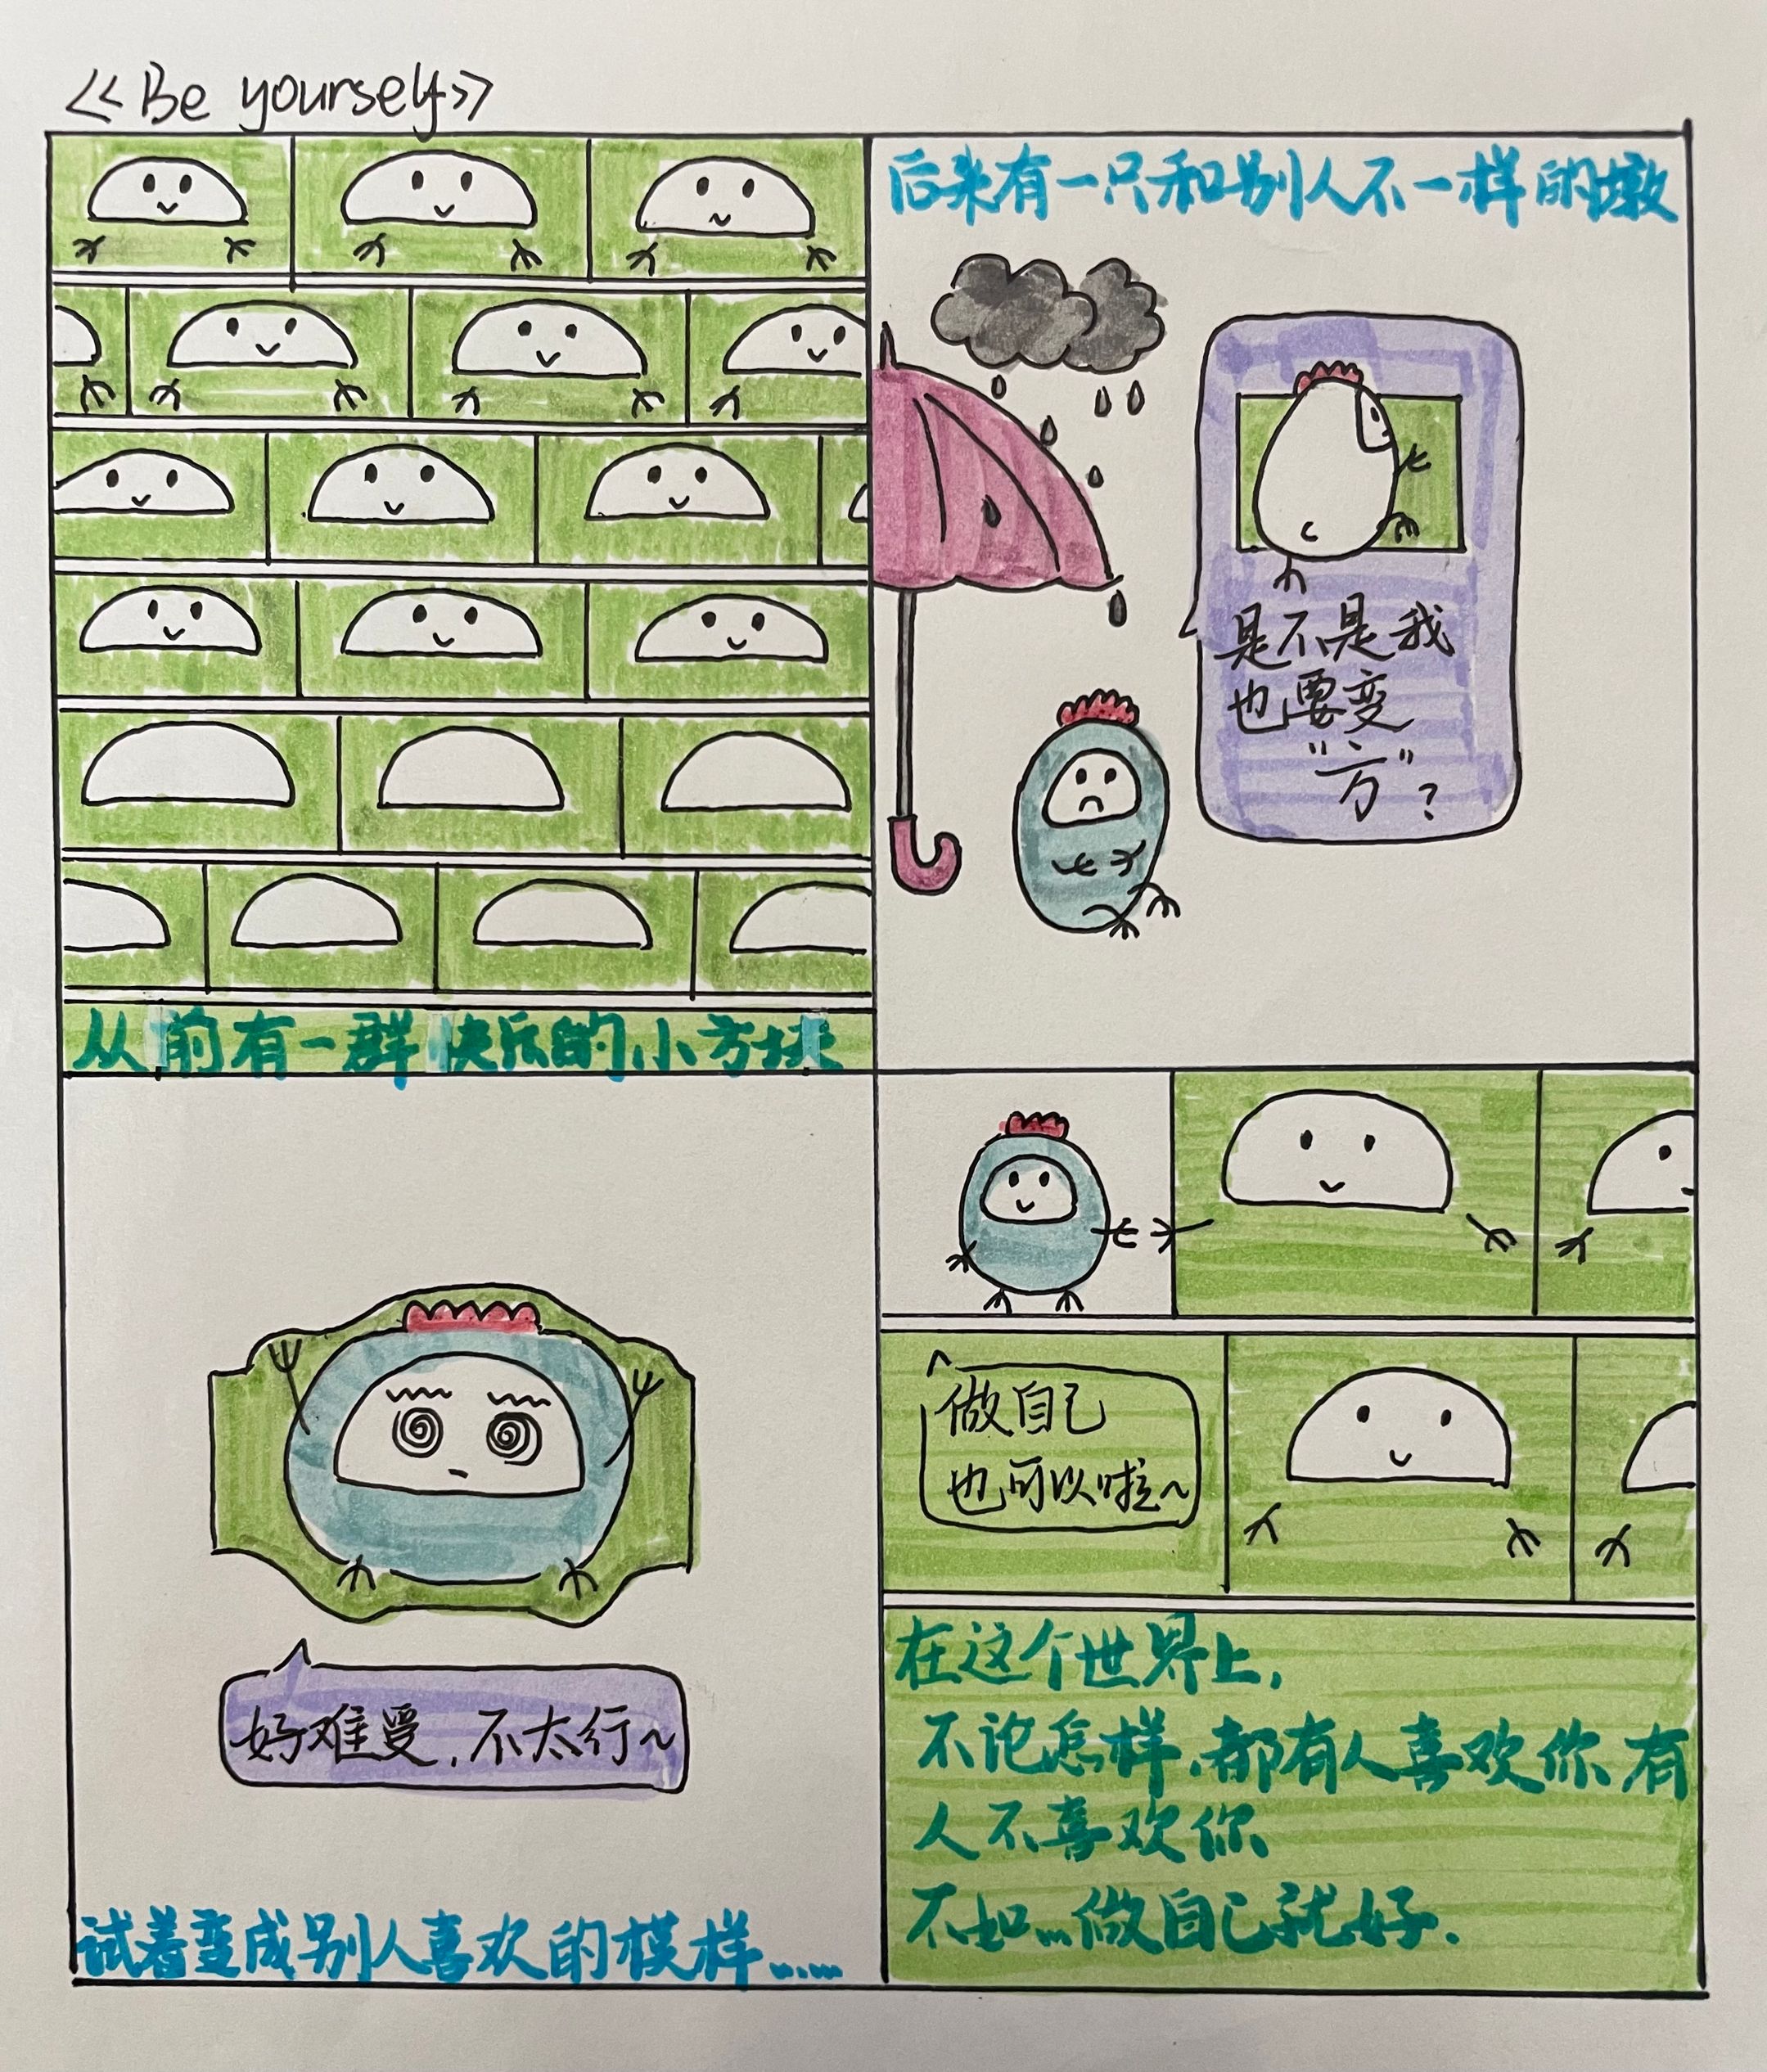 <<Be yourself>>
从前有一群快乐的小方块
后来有一只和别人不一样的墩
是不是我
也要变
"方"?
好难受,不太行~
试着变成别人喜欢的模样……
做自己
也可以啦~
在这个世界上,
不论怎样,都有人喜欢你 有
人不喜欢你
不如...做自己就好.